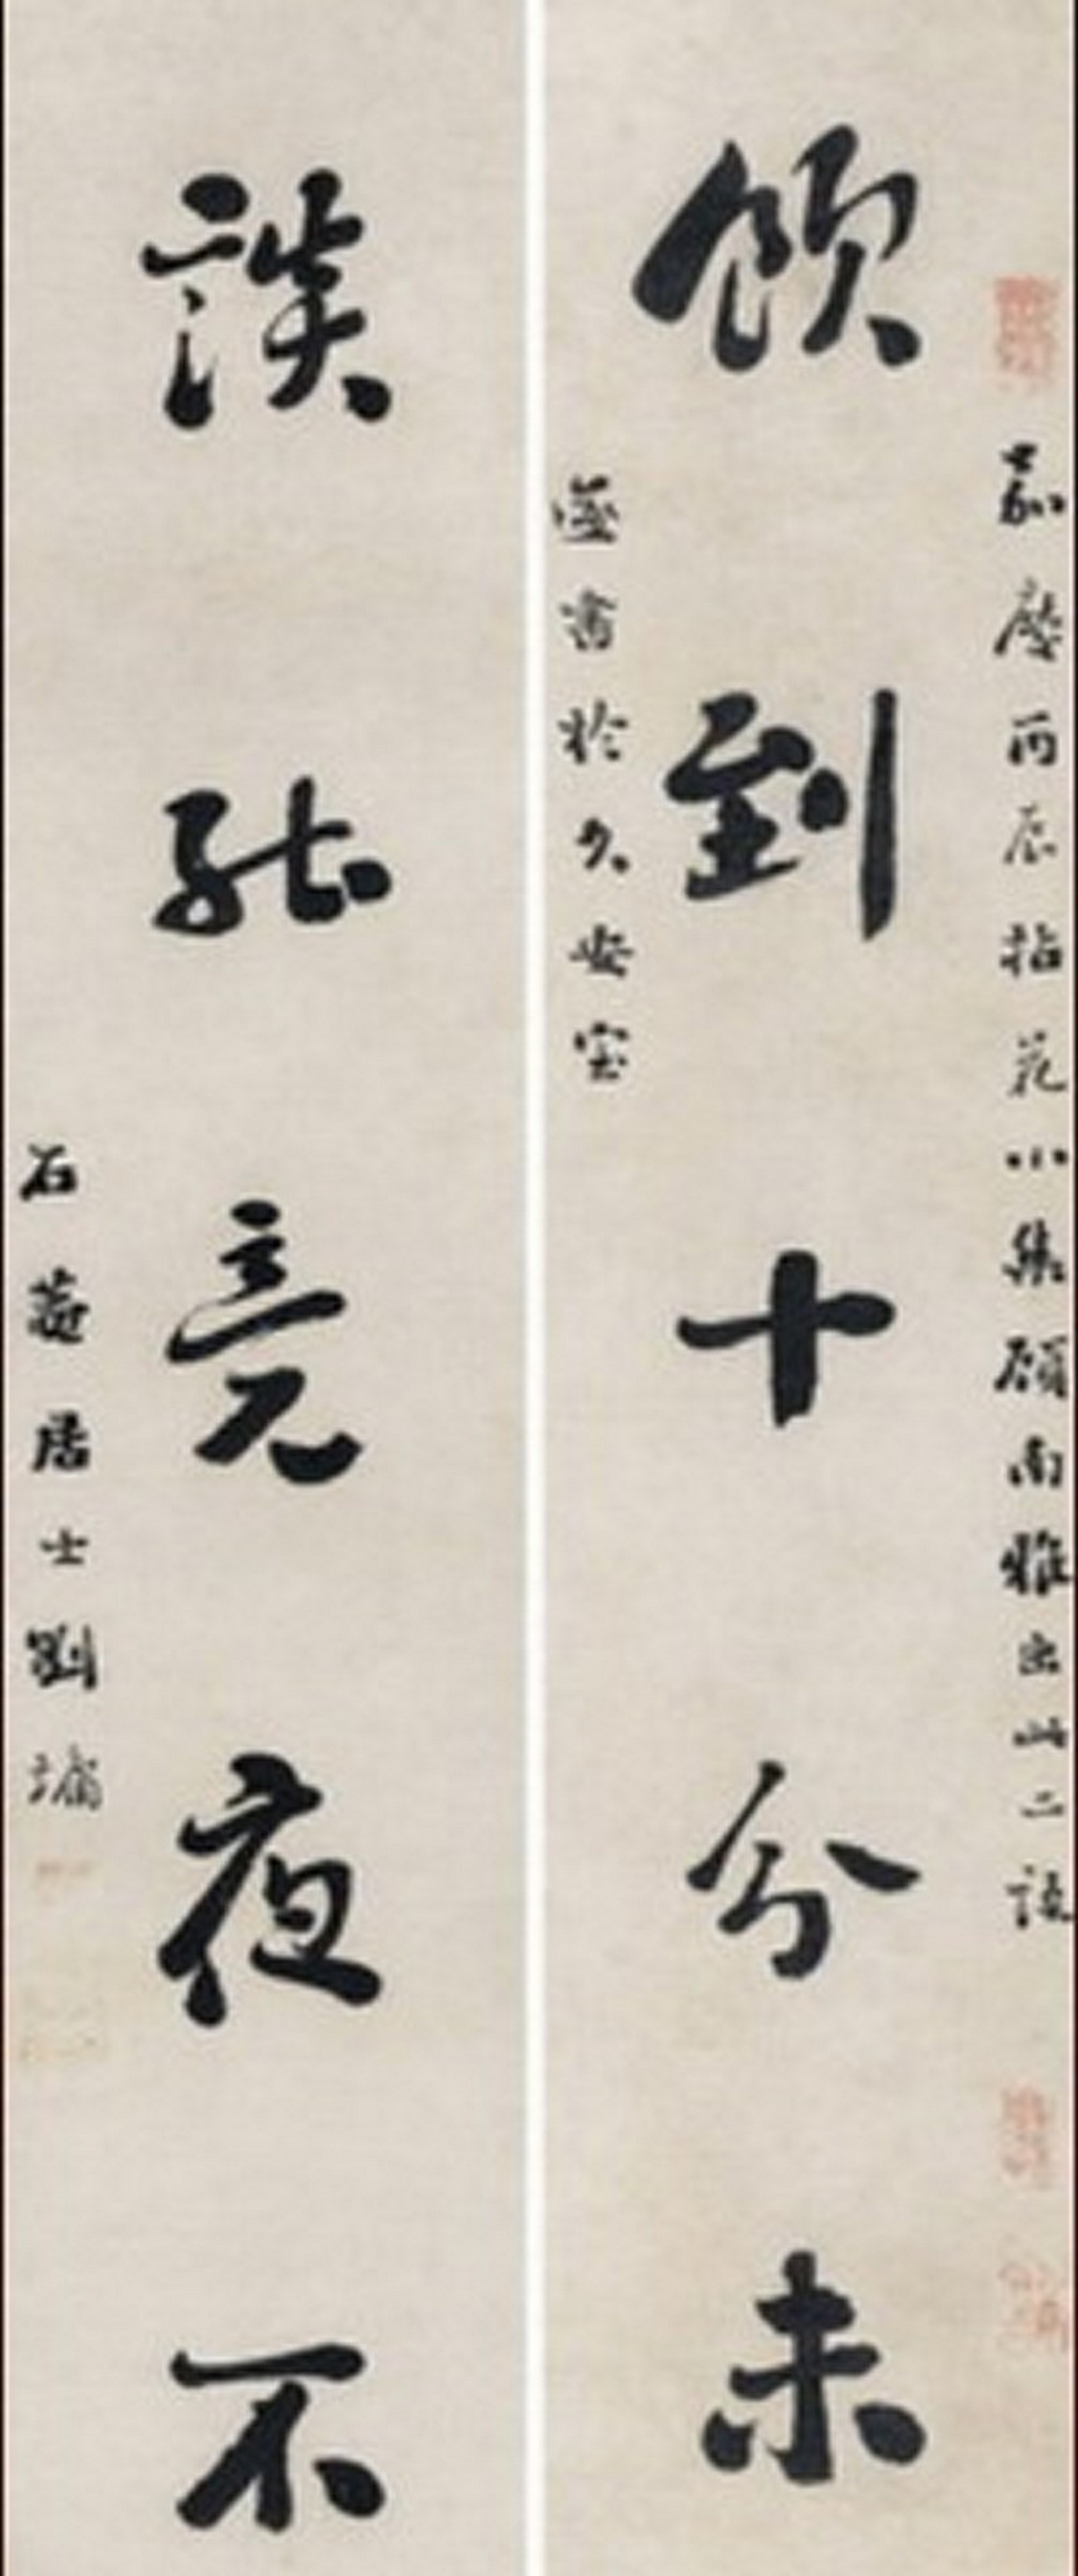 嘉慶丙辰拈花小集顧南雅出此二語
飲到十分未
書於久安室
談能竟夜不
石菴居士劉墉